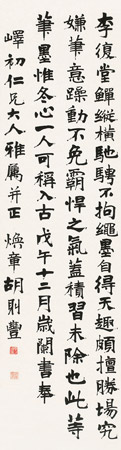 李復堂鱓縱橫馳騁不拘繩墨自得天趣頗擅勝場究
嫌筆意躁動不免霸悍之氣蓋積習未除也此等
筆墨惟冬心一人可稱入古戊午十二月歲闌書奉
嶧初仁兄大人雅屬并正 煥章胡則豐